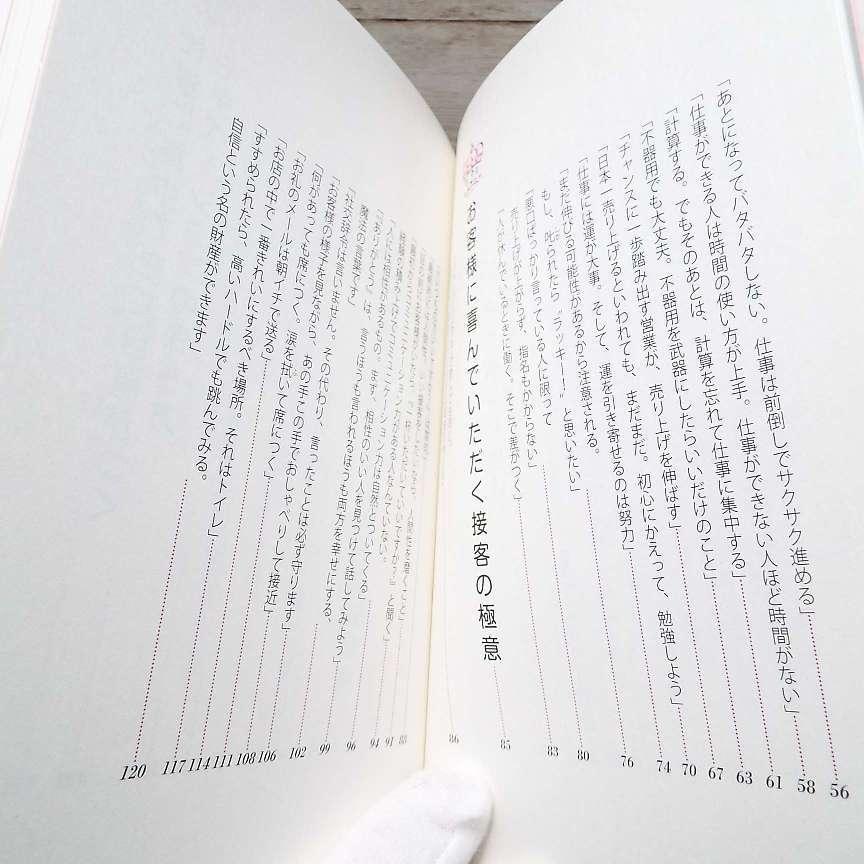 「あとになってバタバタしない。仕事は前倒しでサクサク進める」 56
「仕事ができる人は時間の使い方が上手。仕事ができない人ほど時間がない」 58
「計算する。でもそのあとは、計算を忘れて仕事に集中する」 61
「不器用でも大丈夫。不器用を武器にしたらいいだけのこと」 63
「チャンスに一歩踏み出す営業が、売り上げを伸ばす」 67
「日本一売り上げるといわれても、まだまだ。初心にかえって、勉強しよう」 70
「仕事には運が大事。そして、運を引き寄せるのは努力」 74
「まだ伸びる可能性があるから注意される。
もし、叱られたら“ラッキー！”と思いたい」 76
「悪口ばっかり言っている人に限って
売り上げが上がらず、指名もかからない」 80
「人が休んでいるときに働く。そこで差がつく」 83
お客様に喜んでいただく接客の極意 85
86
88
91
「人には相性があるもの。まず、相性のいい人を見つけて話してみよう」
「ありがとう」は、言うほうも言われるほうも両方を幸せにする、
魔法の言葉です」
「社交辞令は言いません。その代わり、言ったことは必ず守ります」
「お客様の様子を見ながら、あの手この手でおしゃべりして接近」
「何があっても席につく。涙を拭いて席につく」
「お礼のメールは朝イチで送る」
「お店の中で一番きれいにするべき場所。それはトイレ」
「すすめられたら、高いハードルでも跳んでみる。
自信という名の財産ができます」
94
96
99
102
106
108
111
114
117
120